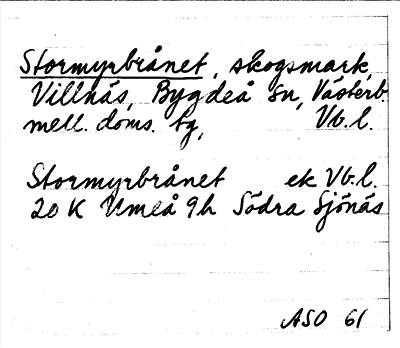 Stormyrbrånet, skogsmark,
Villnäs, Bygdeå sn, Västerb.
mell. doms. tg, Vb.l.
Stormyrbrånet ek Vb.l.
20 K Umeå 9h Södra Sjönäs
ASO 61